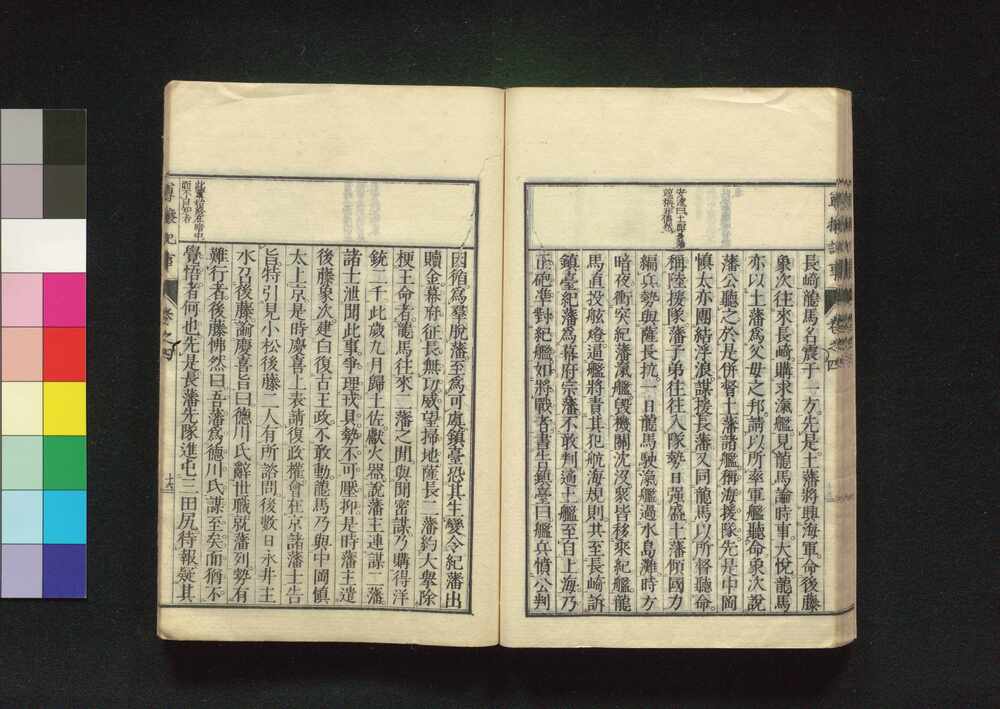 長﨑龍馬名震于一方先是土藩將興海軍命後藤
象次往來長﨑購求滊艦見龍馬諭時事大悅龍馬
亦以土藩爲父母之邦請以所率軍艦聽命象次說
藩公聽之於是併督土藩諸艦稱海援隊先是中岡
愼太亦團結浮浪謀援長藩又同龍馬以所督聽命
稱陸援隊藩子弟往往入隊勢日强盛土藩傾國力
編兵勢與薩長抗一日龍馬駛滊艦過水島灘時方
暗夜衝突紀藩滊艦毀機關沈沒衆皆移乘紀艦龍
馬直投舷燈逼艦將責其犯航海規則共至長﨑訴
鎭臺紀藩爲幕府宗藩不敢判適土艦至自上海乃
正砲準對紀艦如將戰者書告鎭臺曰艦兵憤公判
因循爲羣脫藩至爲可虞鎭臺恐其生變令紀藩出
贖金幕府征長無功威望掃地薩長二藩約大擧除
梗王命者龍馬往來二藩之閒與聞密謀乃購得洋
銃二千此歲九月歸土佐獻火器說藩主連謀二藩
諸士泄聞此事爭理戎具勢不可壓抑是時藩主遣
後藤象次建白復古王政不敢動龍馬乃與中岡愼
太上京是時慶喜上表請復政權會在京諸藩士告
旨特引見小松後藤二人有所諮問後數日永井主
水召後藤諭慶喜旨曰德川氏辭世職就藩列勢有
難行者後藤怫然曰吾藩爲德川氏謀至矣而猶不
覺悟者何也先是長藩先隊進屯三田尻待報疑其
卷之四